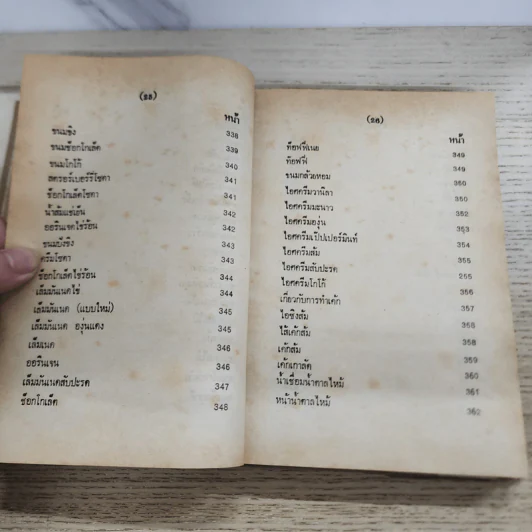 (๑๑)
หน้า
ขนมขิง 338
ขนมช็อกโกเล็ต 339
ขนมโกโก้ 340
สตรอร์เบอร์รี่โซดา 341
ช็อกโกเล็ตโซดา 341
น้ำส้มแช่เย็น 342
ออรันเจดไข่ร้อน 342
ขนมปังขิง 343
ครีมโซดา 343
ช็อกโกเล็ตไข่ร้อน 344
เล็มมันเนดไข่ 344
เล็มมันเนด (แบบใหม่) 345
เล็มมันเนด องุ่นแดง 345
เล็มเนด 346
ออรินเจน 346
เล็มมันเนดสับปะรด 347
ช็อกโกเล็ต 348
(๑๒)
หน้า
ท๊อฟฟี่เนย 349
ท๊อฟฟี่ 349
ขนมกล้วยหอม 350
ไอศครีมวานิลา 350
ไอศครีมมะนาว 352
ไอศครีมองุ่น 353
ไอศครีมเป๊ปเปอร์มินท์ 354
ไอศครีมส้ม 355
ไอศครีมสับปะรด 255
ไอศครีมโกโก้ 356
เกี่ยวกับการทำเค้ก 357
ไอซิงส้ม 358
ไส้เค้กส้ม 358
เค้กส้ม 359
เค้กเกาลัด 360
น้ำเชื่อมน้ำตาลไหม้ 361
หน้าน้ำตาลไหม้ 362